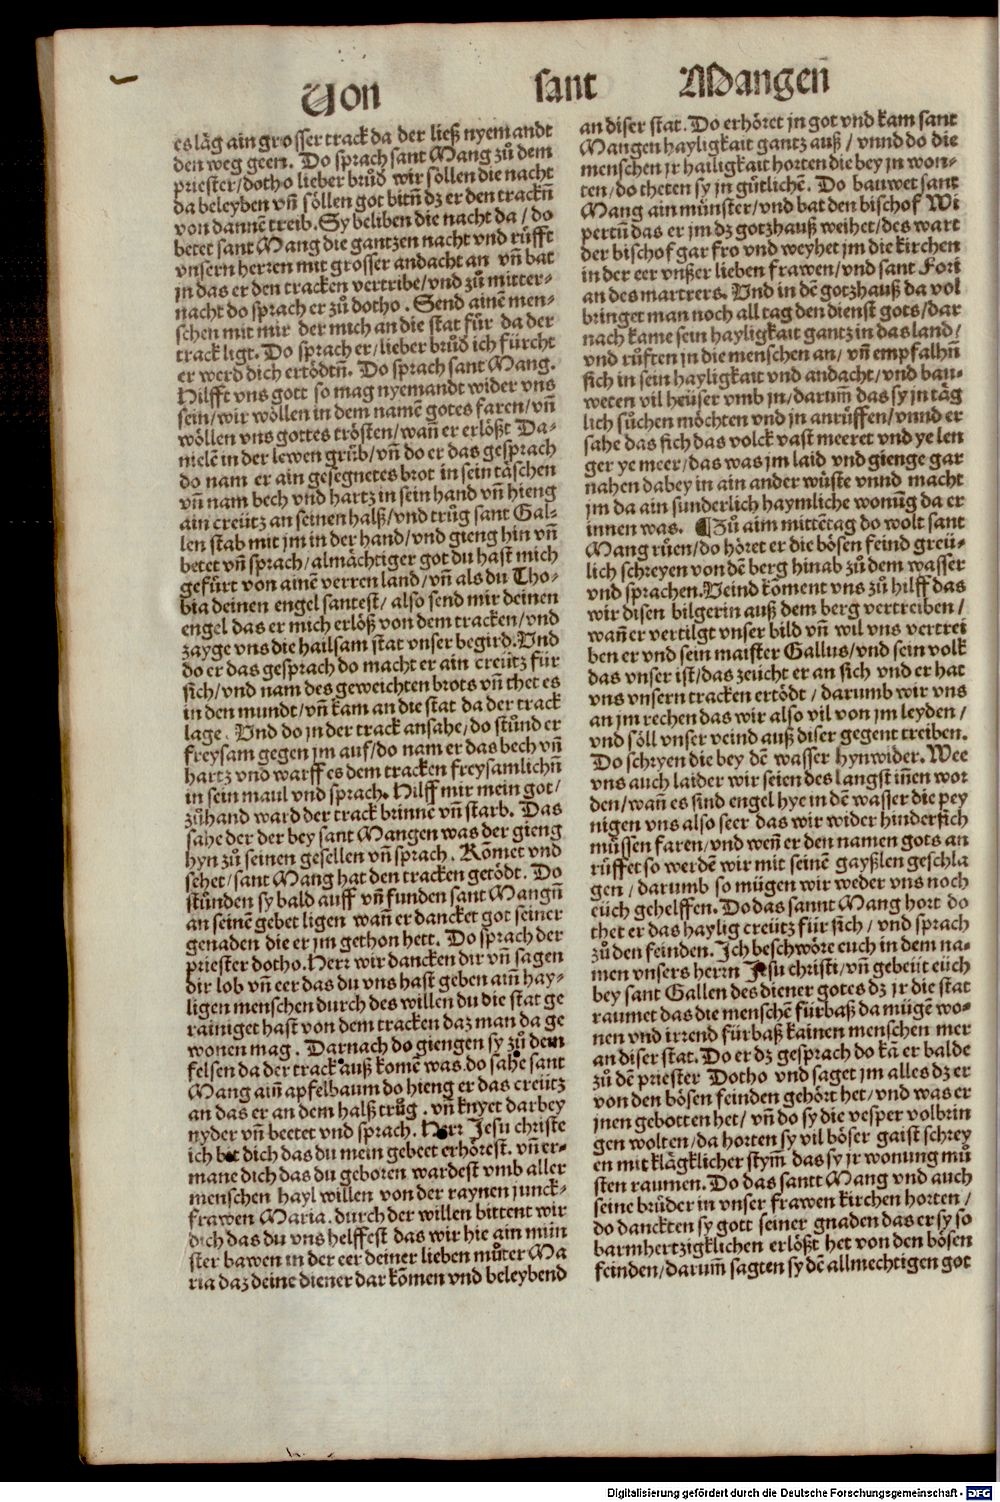 Von sant Mangen̄
es läg ain grosser track da der ließ nyemandt
den weg geen. Do sprach sant Mang zů dem
priester/dotho lieber brůd wir söllen die nacht
da beleyben vn̄ söllen got bitn̄ dz er den trackn̄
von dannē treib. Sy beliben die nacht da/do
betet sant Mang die gantzen nacht vnd růfft
vnsern herren mit grosser andacht an vn̄ bat
jn das er den tracken vertribe/vnd zů mitter-
nacht do sprach er zů dotho. Send ainē men-
schen mit mir der mich an die stat für da der
track ligt. Do sprach er/lieber brůd ich fürcht
er werd dich ertödtn̄. Do sprach sant Mang.
Hilfft vns gott so mag nyemandt wider vns
sein/wir wöllen in dem namē gotes faren/vn̄
wöllen vns gottes trösten/wan̄ er erlößt Da-
nielē in der lewen grůb/vn̄ do er das gesprach
do nam er ain gesegnetes brot in sein täschen
vn̄ nam bech vnd hartz in sein hand vn̄ hieng
ain creütz an seinen halß/vnd trůg sant Gal-
len stab mit jm in der hand/vnd gieng hin vn̄
betet vn̄ sprach/almächtiger got du hast mich
gefürt von ainē verren land/vn̄ als du Tho-
bia deinen engel santest/also send mir deinen
engel das er mich erlöß von dem tracken/vnd
zayge vns die hailsam stat vnser begird. Vnd
do er das gesprach do macht er ain creütz für
sich/vnd nam des geweichten brots vn̄ thet es
in den mundt/vn̄ kam an die stat da der track
lage. Vnd do jn der track ansahe/do stůnd er
freysam gegen jm auf/do nam er das bech vn̄
hartz vnd warff es dem tracken freysamlichn̄
in sein maul vnd sprach. Hilff mir mein got/
zůhand ward der track brinnē vn̄ starb. Das
sahe der der bey sant Mangen was der gieng
hyn zů seinen gesellen vn̄ sprach. Kōmet vnd
sehet/sant Mang hat den tracken getödt. Do
stůnden sy bald auff vn̄ funden sant Mangn̄
an seinē gebet ligen wan̄ er dancket got seiner
genaden die er jm gethon hett. Do sprach der
priester dotho. Herr wir dancken dir vn̄ sagen
dir lob vn̄ eer das du vns hast geben ain̄ hay-
ligen menschen durch des willen du die stat ge
rainiget hast von dem tracken daz man da ge
wonen mag. Darnach do giengen sy zů dem
felsen da der track auß komē was. do sahe sant
Mang ain̄ apfelbaum do hieng er das creütz
an das er an dem halß trůg. vn̄ knyet darbey
nyder vn̄ beetet vnd sprach. Herr Jesu christe
ich bit dich das du mein gebeet erhörest. vn̄ er-
mane dich das du geboren wardest vmb aller
menschen hayl willen von der raynen junck-
frawen Maria. durch der willen bittent wir
dich das du vns helffest das wir hie ain mün
ster bawen in der eer deiner lieben můter Ma
ria daz deine diener dar kōmen vnd beleybend
an diser stat. Do erhöret jn got vnd kam sant
Mangen hayligkait gantz auß/vnnd do die
menschen jr hailigkait horten die bey jn won-
ten/do theten sy jn gůtlichē. Do bauwet sant
Mang ain münster/vnd bat den bischof Wi
pertn̄ das er jm dz gotzhauß weihet/des wart
der bischof gar fro vnd weyhet jm die kirchen
in der eer vnßer lieben frawen/vnd sant Fori
an des martrers. Vnd in dē gotzhauß da vol
bringet man noch all tag den dienst gots/dar
nach kame sein hayligkait gantz in das land/
vnd růften jn die menschen an/vn̄ empfalhn̄
sich in sein hayligkait vnd andacht/vnd bau-
weten vil heüser vmb jn/darum̄ das sy jn täg
lich sůchen möchten vnd jn anrůffen/vnnd er
sahe das sich das volck vast meeret vnd ye len
ger ye meer/das was jm laid vnd gienge gar
nahen dabey in ain ander wůste vnnd macht
jm da ain sunderlich haymliche wonūg da er
innen was. ¶Zů aim mittētag do wolt sant
Mang růen/do höret er die bösen feind greü-
lich schreyen von dē berg hinab zů dem wasser
vnd sprachen. Veind kōment vns zů hilff das
wir disen bilgerin auß dem berg vertreiben/
wan̄ er vertilgt vnser bild vn̄ wil vns vertrei
ben er vnd sein maister Gallus/vnd sein volk
das vnser ist/das zeücht er an sich vnd er hat
vns vnsern tracken ertödt/darumb wir vns
an jm rechen das wir also vil von jm leyden/
vnd söll vnser veind auß diser gegent treiben.
Do schryen die bey dē wasser hynwider. Wee
vns auch laider wir seien des langst in̄en wor
den/wan̄ es sind engel hye in dē wasser die pey
nigen vns also seer das wir wider hindersich
müssen faren/vnd wen̄ er den namen gots an
rüffet so werdē wir mit seinē gayßlen geschla
gen/darumb so mügen wir weder vns noch
eüch gehelffen. Do das sannt Mang hort do
thet er das haylig creütz für sich/vnd sprach
zů den feinden. Ich beschwöre euch in dem na-
men vnsers herrn Jesu christi/vn̄ gebeüt eüch
bey sant Gallen des diener gotes dz jr die stat
raumet das die menschē fürbaß da mügē wo-
nen vnd irrend fürbaß kainen menschen mer
an diser stat. Do er dz gesprach do kā er balde
zů dē priester Dotho vnd saget jm alles dz er
von den bösen feinden gehört het/vnd was er
jnen gebotten het/vn̄ do sy die vesper volbrin
gen wolten/da horten sy vil böser gaist schrey
en mit klägklicher stym̄ das sy jr wonung mů
sten raumen. Do das santt Mang vnd auch
seine brůder in vnser frawen kirchen horten/
do danckten sy gott seiner gnaden das er sy so
barmhertzigklichen erlößt het von den bösen
feinden/darum̄ sagten sy dē allmechtigen got
Digitalisierung gefördert durch die Deutsche Forschungsgemeinschaft - DFG